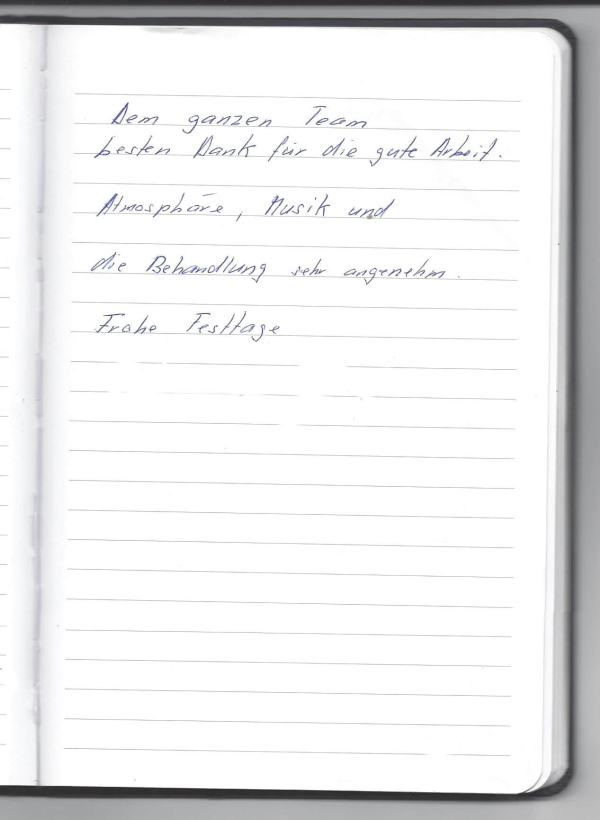 Dem ganzen Team
besten Dank für die gute Arbeit.
Atmosphäre, Musik und
die Behandlung sehr angenehm.
Frohe Festtage